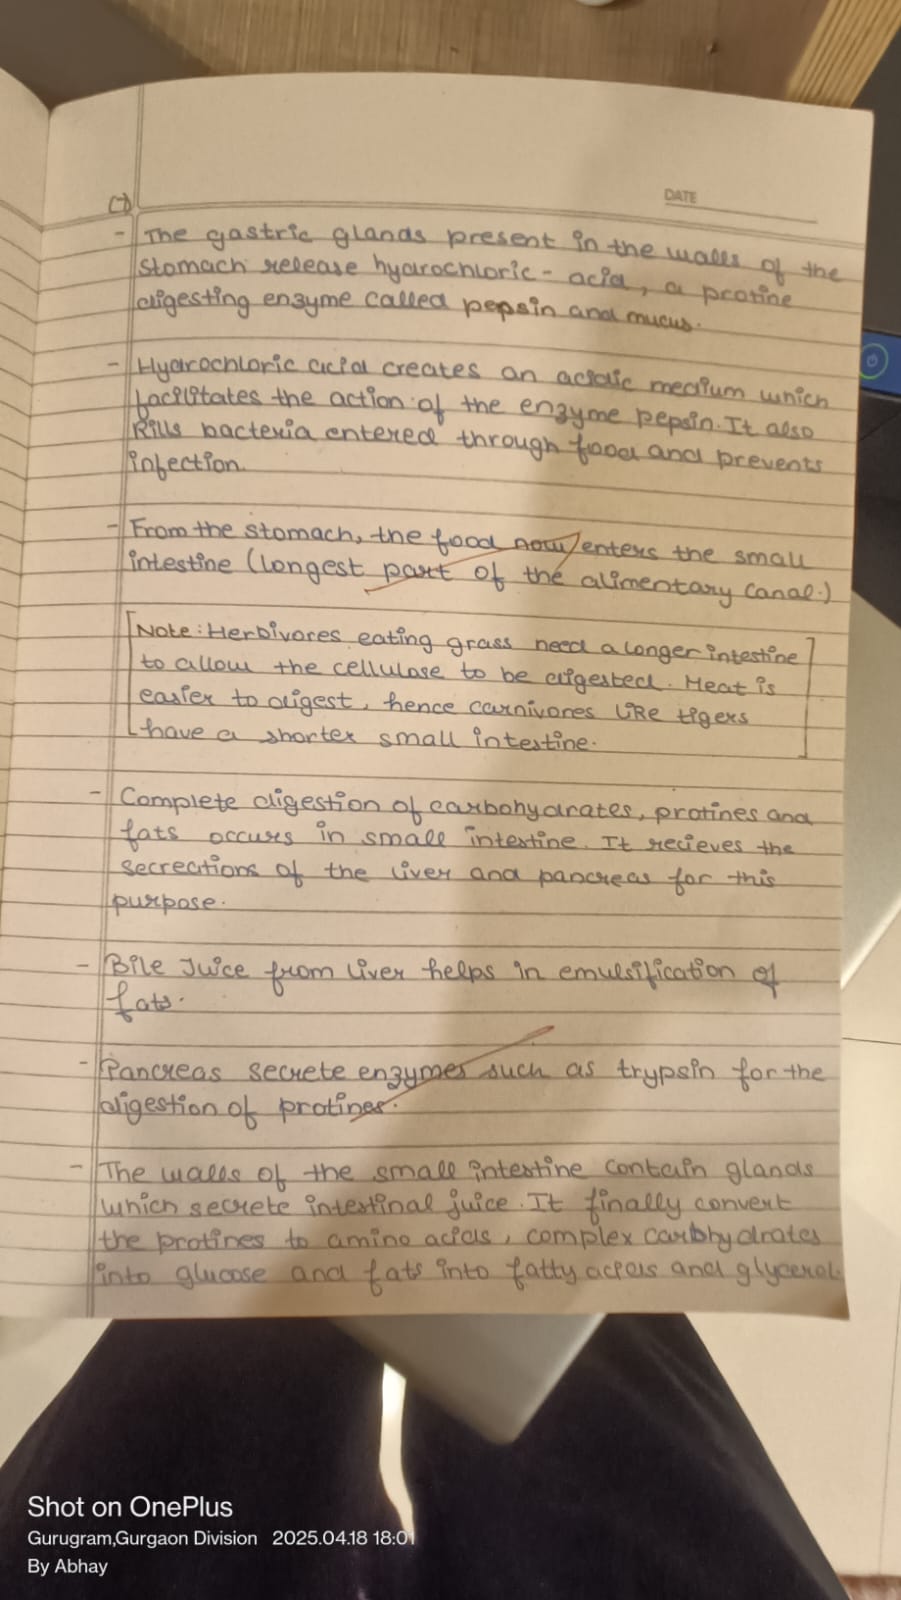 (7)
DATE
- The gastric glands present in the walls of the
stomach release hydrochloric - acid, a protine
digesting enzyme called pepsin and mucus.
- Hydrochloric acid creates an acidic medium which
facilitates the action of the enzyme pepsin. It also
kills bacteria entered through food and prevents
infection
- From the stomach, the food now enters the small
intestine (longest part of the alimentary canal.)
[Note: Herbivores eating grass need a longer intestine
to allow the cellulose to be digested. Meat is
easier to digest, hence carnivores like tigers
have a shorter small intestine.]
- Complete digestion of carbohydrates, protines and
fats occurs in small intestine. It recieves the
secreations of the liver and pancreas for this
purpose.
- Bile Juice from liver helps in emulsification of
fats.
- Pancreas secrete enzymes such as trypsin for the
digestion of protines.
- The walls of the small intestine contain glands
which secrete intestinal juice. It finally convert
the protines to amino acids, complex carbhydrates
into glucose and fats into fatty acids and glycerol.
Shot on OnePlus
Gurugram,Gurgaon Division 2025.04.18 18:01
By Abhay